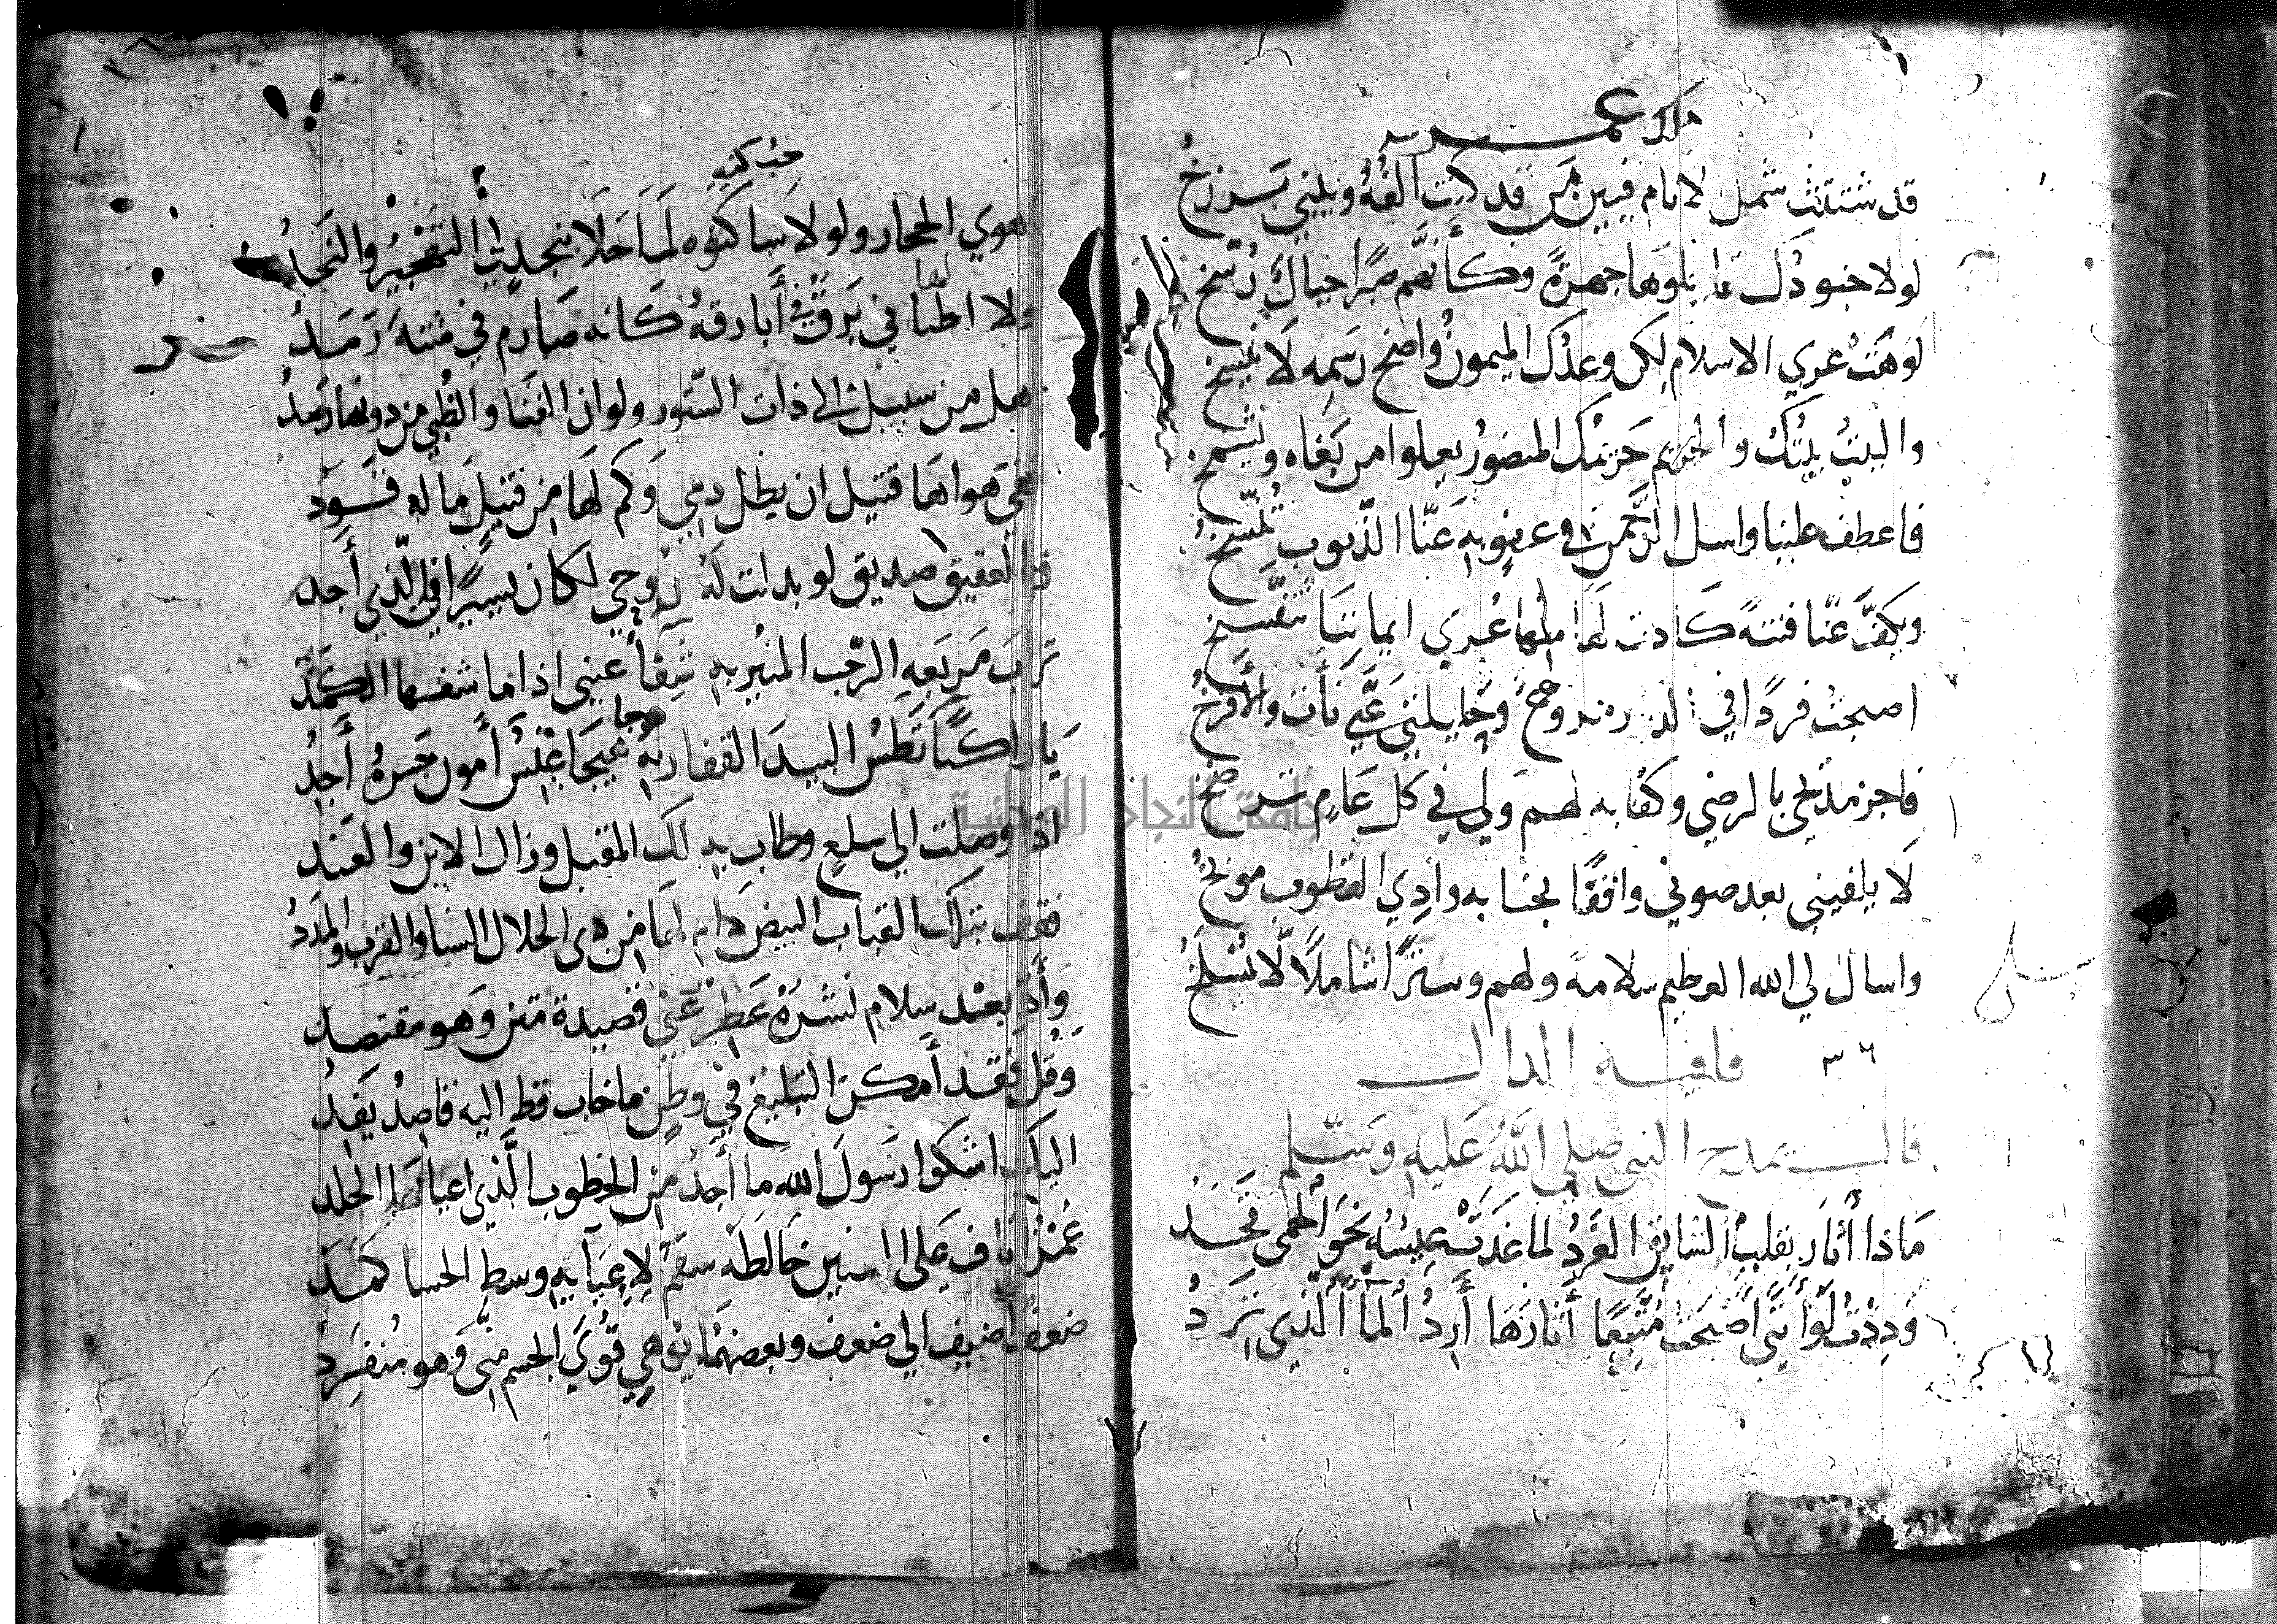 ملك عمر
قد شتتت شمل الانام فبين من قد كنت آلفه وبيني برزخ
لولا جنودك ما بلوها جهرة وكأنهم صبرا جبال رسخ
لوهت عري الاسلام لكن وعدك الميمون واضح رسمه لا ينسخ
والبيت بيتك والحريم حريمك المنصور يعلوا من بغاه ويشمخ
فاعطف علينا واسل الرحمن في عفو به عنا الذنوب تمسخ
ويكف عنا فتنة كادت لها عري ايماننا تتفسخ
اصبحت فردا في وحلايلني عني نأت والأفرخ
فاجز مدتحي بالرضي وكفابه لهم ولي في كل عام
لا يلفيني بعد صوني واقفا بجنابه وادي الخطوب موبخ
واسال لي الله العظيم سلامة ولهم وسترا شاملا لا يسلخ
٣٦ قافية الدال
قال يمدح النبي صلى الله عليه وسلم
ماذا أثار بقلب الشايق الغرد لما غدت عيسه نحو الحمى تخد
وددت لو أنني أصبحت متبعا أثارها أرد الماء الذي ترد
حب كنيه
هوي الحجاز ولولا ساكنوه لما حلا بنجد لي التهجير والنجد
ولا اطبا في برق في أبارقه كانه صارم في متنه ربد
لها
هل من سبيل الى ذات الستور ولو ان القنا والظبي من دونها رصد
ففي هواها قتيل ان يطل دمي وكم لها من قتيل ما له قود
وبالعقيق صديق لو بدلت له روحي لكان يسيرا في الذي أجد
تراب مربعه الرحب المنير به شفا عيني اذا ما شفها الكمد
يا راكبا تطس البيد القفار به عيس أمون جسرة أجد
وجنا
اذا وصلت الي سلع وطاب به لك المقيل وزال الاين والعند
فقف بتلك القباب البيض دام لها من ذي الجلال السنا والقرب والمدد
وأد بعد سلام نشره عطر عني قصيدة مثن وهو مقتصد
وقل فقد أمكن التبليغ في وطن ما خاب قط اليه قاصد يفد
اليك اشكوا رسول الله ما أجد من الخطوب الذي اعيا لها الجلد
عمر أناف على الستين خالطه سقم لاعبآيه وسط الحسا كمد
ضعف أضيف الي ضعف وبعضهما يوهي قوي الجسم مني وهو منفرد